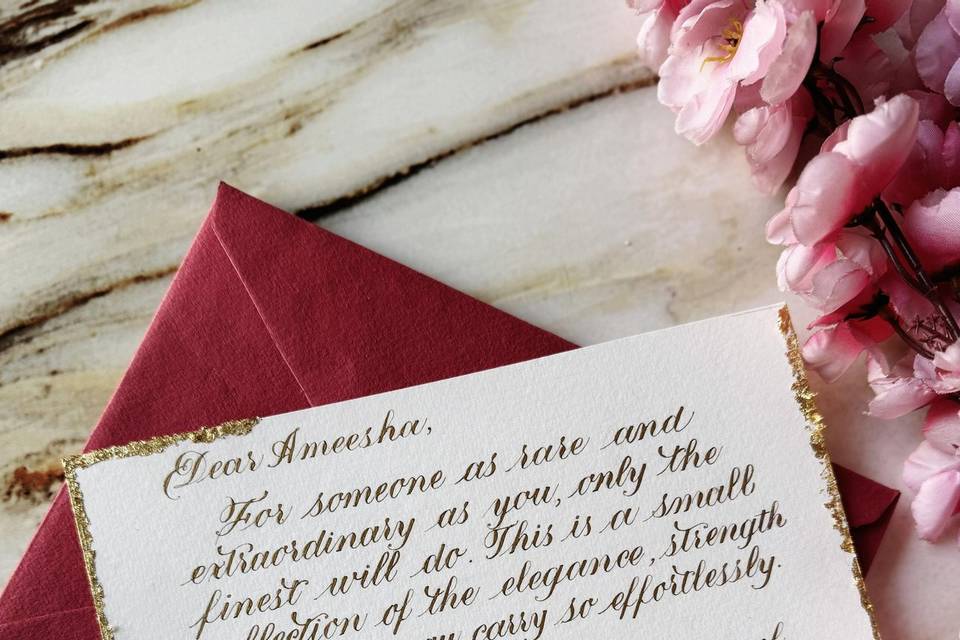 Dear Ameesha,
For someone as rare and
extraordinary as you, only the
finest will do. This is a small
of the elegance, strength
carry so effortlessly.